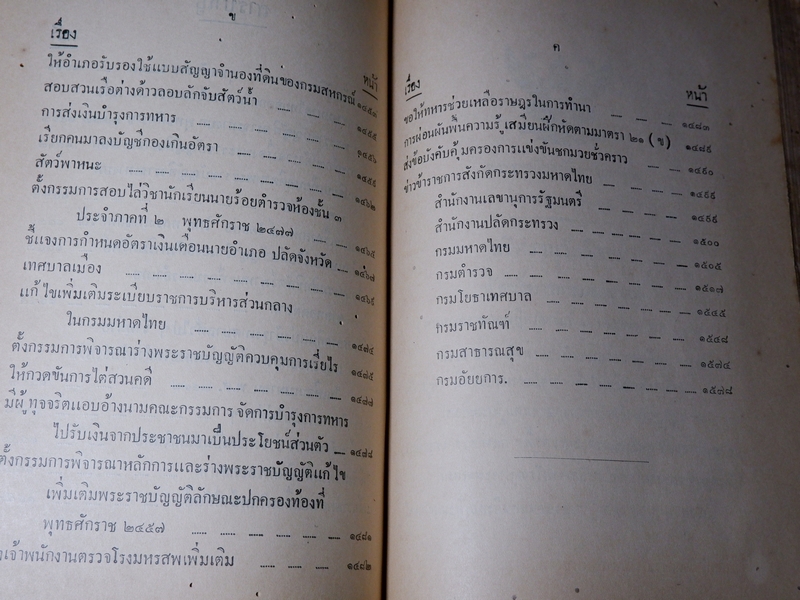 ข
เรื่อง
หน้า
ให้อำเภอรับรองใช้แบบสัญญาจำนองที่ดินของกรมสหกรณ์ ๑๔๕๓
สอบสวนเรือต่างด้าวลอบลักจับสัตว์น้ำ
การส่งเงินบำรุงการทหาร ๑๔๕๕
เรียกคนมาลงบัญชีกองเกินอัตรา ๑๔๕๖
สัตว์พาหนะ ๑๔๕๙
ตั้งกรรมการสอบไล่วิชานักเรียนนายร้อยตำรวจห้องชั้น ๓ ๑๔๖๒
ประจำภาคที่ ๒ พุทธศักราช ๒๔๗๗ ๑๔๖๕
ชี้แจงการกำหนดอัตราเงินเดือนนายอำเภอ ปลัดจังหวัด ๑๔๖๗
เทศบาลเมือง ๑๔๖๙
แก้ไขเพิ่มเติมระเบียบราชการบริหารส่วนกลาง
ในกรมมหาดไทย ๑๔๗๔
ตั้งกรรมการพิจารณาร่างพระราชบัญญัติควบคุมการเรี่ยไร ๑๔๗๕
ให้กวดขันการไต่สวนคดี ๑๔๗๗
มีผู้ทุจริตแอบอ้างนามคณะกรรมการ จัดการบำรุงการทหาร
ไปรับเงินจากประชาชนมาเป็นประโยชน์ส่วนตัว ๑๔๗๘
ตั้งกรรมการพิจารณาหลักการและร่างพระราชบัญญัติแก้ไข
เพิ่มเติมพระราชบัญญัติลักษณะปกครองท้องที่
พุทธศักราช ๒๔๕๗ ๑๔๘๑
เจ้าพนักงานตรวจโรงมหรสพเพิ่มเติม ๑๔๘๒
ค
เรื่อง
หน้า
ขอให้ทหารช่วยเหลือราษฎรในการทำนา ๑๔๘๓
การผ่อนผันพื้นความรู้ เสมียนฝึกหัดตามมาตรา ๒๑ (ข) ๑๔๘๙
ส่งข้อบังคับคุ้มครองการแข่งขันชกมวยชั่วคราว ๑๔๙๐
ข่าวข้าราชการสังกัดกระทรวงมหาดไทย ๑๔๙๙
สำนักงานเลขานุการรัฐมนตรี ๑๔๙๙
สำนักงานปลัดกระทรวง ๑๕๐๐
กรมมหาดไทย ๑๕๐๕
กรมตำรวจ ๑๕๑๗
กรมโยธาเทศบาล ๑๕๔๕
กรมราชทัณฑ์ ๑๕๔๘
กรมสาธารณสุข ๑๕๗๔
กรมอัยยการ. ๑๕๗๘